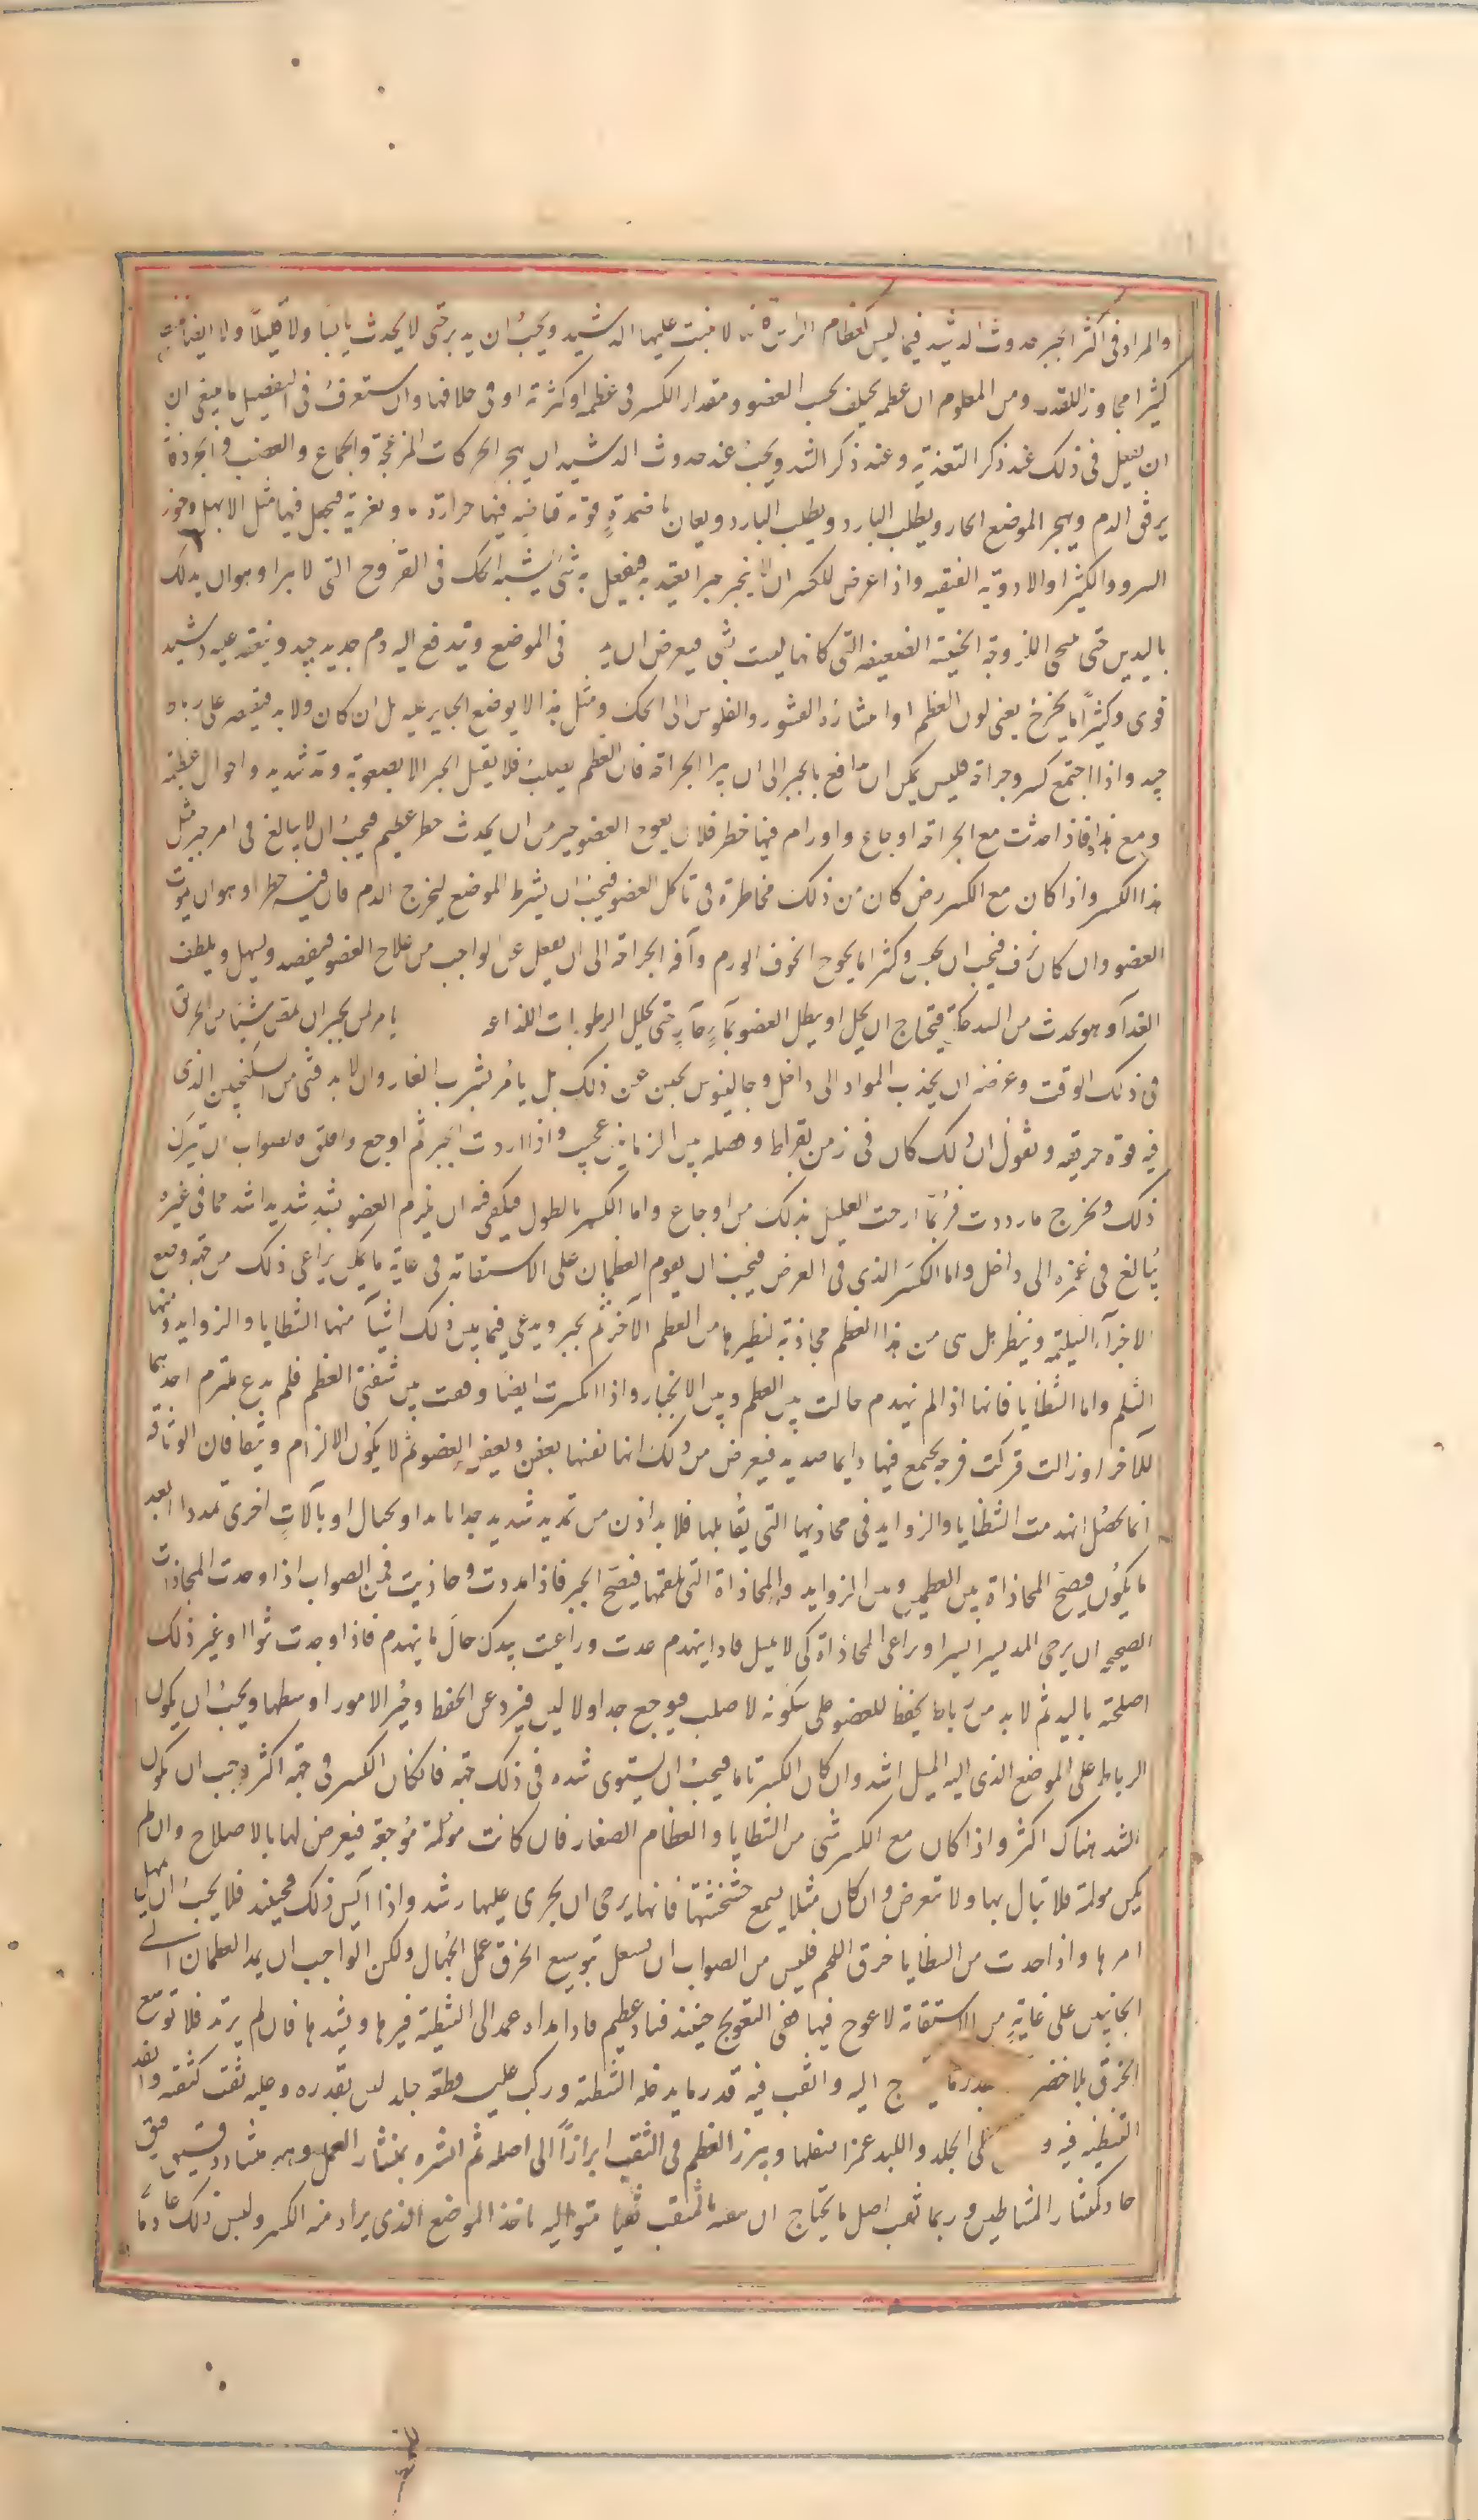 والمراد فى أكثر الجبر حدوث الدشبد فيما ليس كعظام الراس فانه لا ينبت عليها الدشبد ويجب ان يدبر حتى لا يحدث يابسا ولا قليلا ولا ايضا
كثيرا مجاوزا للقدر ومن المعلوم ان عظمه يختلف بحسب العضو ومقدار الكسر فى عظمه او كثرته او فى خلافهما وان ستعرف فى التفصيل ما ينبغى ان
ان يفعل فى ذلك عند ذكر التغذية وعند ذكر الشد ويجب عند حدوث الدشبد ان يهجر الحركات المزعجة والجماع والغضب والحرد فانه
يرقق الدم ويهجر الموضع الحار ويطلب البارد ويطلب البارد ويعان باضمدة قوته قابضه فيها حرارة ما وتغرية فيجعل فيها مثل الابهل وجوز
السرو والكثيرا والادوية القبضيه واذا عرض للكسر ان لا ينجبر جبرا يعتد به فيفعل به شئ يشبه الحك فى القروح التى لا تبرا وهو ان يدلك
باليدين حتى تنحى اللزوجة الخبيثة الضعيفه التى كانها ليست بشئ فيعرض ان فى الموضع ويندفع اليه دم جديد جيد وينعقد عليه دشبد
قوى وكثيرا ما يخرج يعنى لون العظم او انتثار القشور والفلوس الى الحك ومثل هذا لا يوضع الجباير عليه بل ان كان ولا بد فيقتصر على رباط
جيد واذا اجتمع كسر وجراحة فليس يمكن ان تدافع بالجبر الى ان تبرا الجراحة فان العظم يصلب فلا يقبل الجبر الا بصعوبة ومد شديد واحوال عظيمة
ومع هذا فاذا حدثت مع الجراحة اوجاع واورام فيها خطر فلان يعوج العضو خير من ان يحدث خطر عظيم فيجب ان لا يبالغ فى امر جبر مثل
هذا الكسر واذا كان مع الكسر رض كان من ذلك مخاطرة فى تاكل العضو فيجب ان يشرط الموضع ليخرج الدم فان فيه خطرا وهو ان يموت
العضو وان كان نزف فيجب ان يحبس وكثيرا ما يحوج الخوف الورم وآفه الجراحة الى ان يفعل غير الواجب من علاج العضو فيفصد ويسهل ويلطف
الغذآ وهو يحدث من الشد حكة فيحتاج ان يحل او ينطل العضو بمآء حآر حتى تحلل الرطوبات اللذاعه يامر لمن يجبر ان يمص شيئا من الخربق
فى ذلك الوقت وغرضه ان يجذب المواد الى داخل وجالينوس يجبن عن ذلك بل يامر بشرب الغار وان لا بد فشئ من السكنجبين الذى
فيه قوة خربقيه ويقول ان ذلك كان فى زمن بقراط وفصله بين الزمانين عجيب واذا اردت الجبر ثم اوجع واقلق فالصواب ان تترك
ذلك وتخرج ما رددت فربما ارحت العليل بذلك من اوجاع واما الكسر بالطول فيكفى فيه ان يلزم العضو بشد شديد اشد مما فى غيره
يُبالغ فى غمزه الى داخل واما الكسر الذى فى العرض فيجب ان يقوم العظمان على الاستقامة فى غاية ما يمكن يراعى ذلك من جهة وضع
الاجزآء السليمه وينظر هل شى من هذا العظم مجاذبة لنظيرها من العظم الآخر ثم يجبر ويدعى فيما بين ذلك اشيآ منها الشظايا والزوايد ومنها
الثلم واما الشظايا فانها اذا لم تنهدم حالت بين العظم وبين الانجبار واذا انكسرت ايضا وقعت بين شفتى العظم فلم يدع يلتزم احدهما
للاخر او زالت فتركت فرجة يجتمع فيها دايما صديد فيعرض من ذلك انها نفسها يعفن ويعفن العضو ثم لا يكون الالزام وثيقا فان الوثاقة
انما تحصل اذا انهدمت الشظايا والزوايد فى محاذيها التى يُقابلها فلا بد اذن من تمديد شديد جدا باليد او بحبال او بآلات اخرى تمدد ابعد
ما يكون فيصح المحاذاة بين العظمين وبين الزوايد والمحاذاة التى تلقمها فيصح الجبر فاذا مددت وحاذيت فمن الصواب اذا وجدت المحاذاة
الصحيحه ان يرخى المد يسيرا يسيرا ويراعى المحاذاة كى لا يميل فاذا انهدم عدت وراعيت بيدك حال ما ينهدم فاذا وجدت نتوا او غير ذلك
اصلحته باليد ثم لا بد من رباط يحفظ للعضو على سكونه لا صلب فيوجع جدا ولا لين فيزرد عن الحفظ وخير الامور اوسطها ويجب ان يكون
الرباط على الموضع الذى اليه الميل اشد وان كان الكسر تاما فيجب ان يستوى شده فى ذلك جهة فان كان الكسر فى جهة اكثر وجب ان يكون
الشد هناك اكثر واذا كان مع الكسر شئ من الشظايا والعظام الصغار فان كانت مؤلمة مُوجعة فيعرض لها بالاصلاح وان لم
يكن مولمة فلا تبال بها ولا تعرض وان كان مثلا يسمع خشخشتها فانها يرجى ان يجرى عليها دشبد واذا آيس ذلك فحينئذ فلا يجب ان يهمل
امرها واذا حدث من الشظايا خرق اللحم فليس من الصواب ان يفعل توسيع الخرق عمل الجهال ولكن الواجب ان يمد العظمان الى
الجانبين على غاية من الاستقامة لا عوج فيها ففى التعويج حينئذ فساد عظيم فاذا مداه عمد الى الشظية فيردها ويشدها فان لم يرتد فلا توسع
الخرق بل احضر بقدر ما ج اليه واثقب فيه قدر ما يدخله الشظية وركب عليه قطعة جلد لين بقدره وعليه ثقب كثقبه وانفذ
الشظيه فيه و على الجلد واللبد غمزا يسفلها ويبرز العظم فى الثقب ابرازا الى اصله ثم انشره بمنشار العمل وهو منشار رقيق
حاد كمنشار المشاطين وربما ثقب اصل ما يحتاج ان بالمثقب ثقبا متواليه ياخذ الموضع الذى يراد منه الكسر وليس ذلك عادما